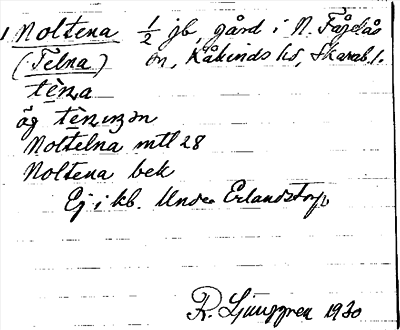 1 Noltena 1/2 jb, gård i N. Fågelås
(Telna) sn, Kåkinds hd, Skarab. l.
tèna
äg tènɩzən
Noltelna mtl 28
Noltena bek
Ej i kb. Under Erlandstorp
R. Ljunggren 1930